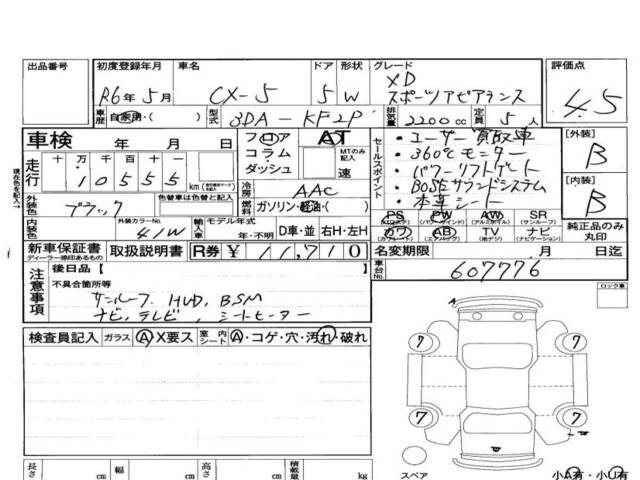 出品番号
初度登録年月 車名 ドア 形状 グレード 評価点
R6年5月 CX-5 5 W XD スポーツアピアランス 4.5
車歴 自家用・( ) 型式 3DA-KF2P 排気量 2200cc 定員 5人
車検 年 月 日 フロア AT
コラム MTのみ記入
ダッシュ 速
走行 十 万 千 百 十 一
10555 km
セールスポイント
・ユーザー買取車
・360℃モニター
・パワーリフトゲート
・BOSEサウンドシステム
・本革シート
[外装] B
[内装] B
冷房 AAC
外装色 ブラック 色替車は色替と記入
燃料 ガソリン・軽油・( )
内装色 外装カラーNo. 41W 輸入車 モデル年式 年・不明 D車・並 右H・左H
PS PW AW SR
(パワステ) (パワーウインド) (アルミホイル) (サンルーフ)
カワ AB TV ナビ
(カワシート) (エアバッグ) (地デジ) (ナビゲーション)
純正品のみ丸印
新車保証書 取扱説明書 R券 ¥11,710 名変期限 月 日迄
ディーラー捺印あるもの
車台No. 607776
注意事項
後日品 [ ]
不具合箇所等
サンルーフ. HUD, BSM
ナビ, テレビ, シートヒーター
ロック車
検査員記入 ガラス A X要ス 室内シート A・コゲ・穴・汚れ・破れ
A
7 7
7 7
スペア
長さ cm 幅 cm 高さ cm 積載量 kg
小A有・小U有